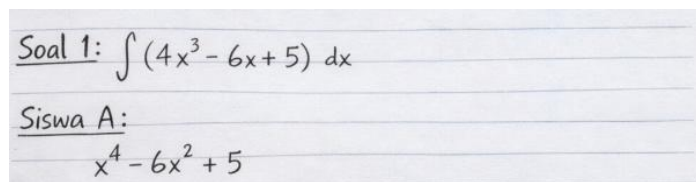 Soal 1: ∫ (4x³ - 6x + 5) dx
Siswa A:
x⁴ - 6x² + 5